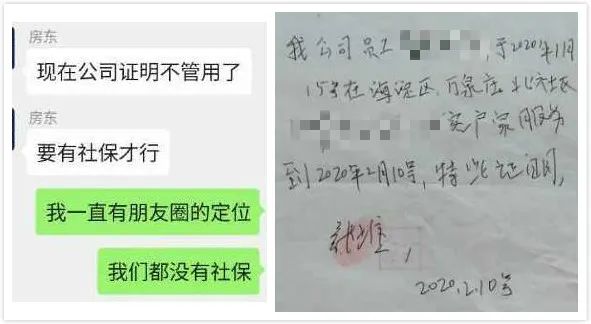 房东
现在公司证明不管用了
房东
要有社保才行
我一直有朋友圈的定位
我们都没有社保
我公司员工 ,于2020年1月
15号在海淀区万泉庄北社区
客户家服务
到2020年2月10号,特此证明,
2020.2.10号